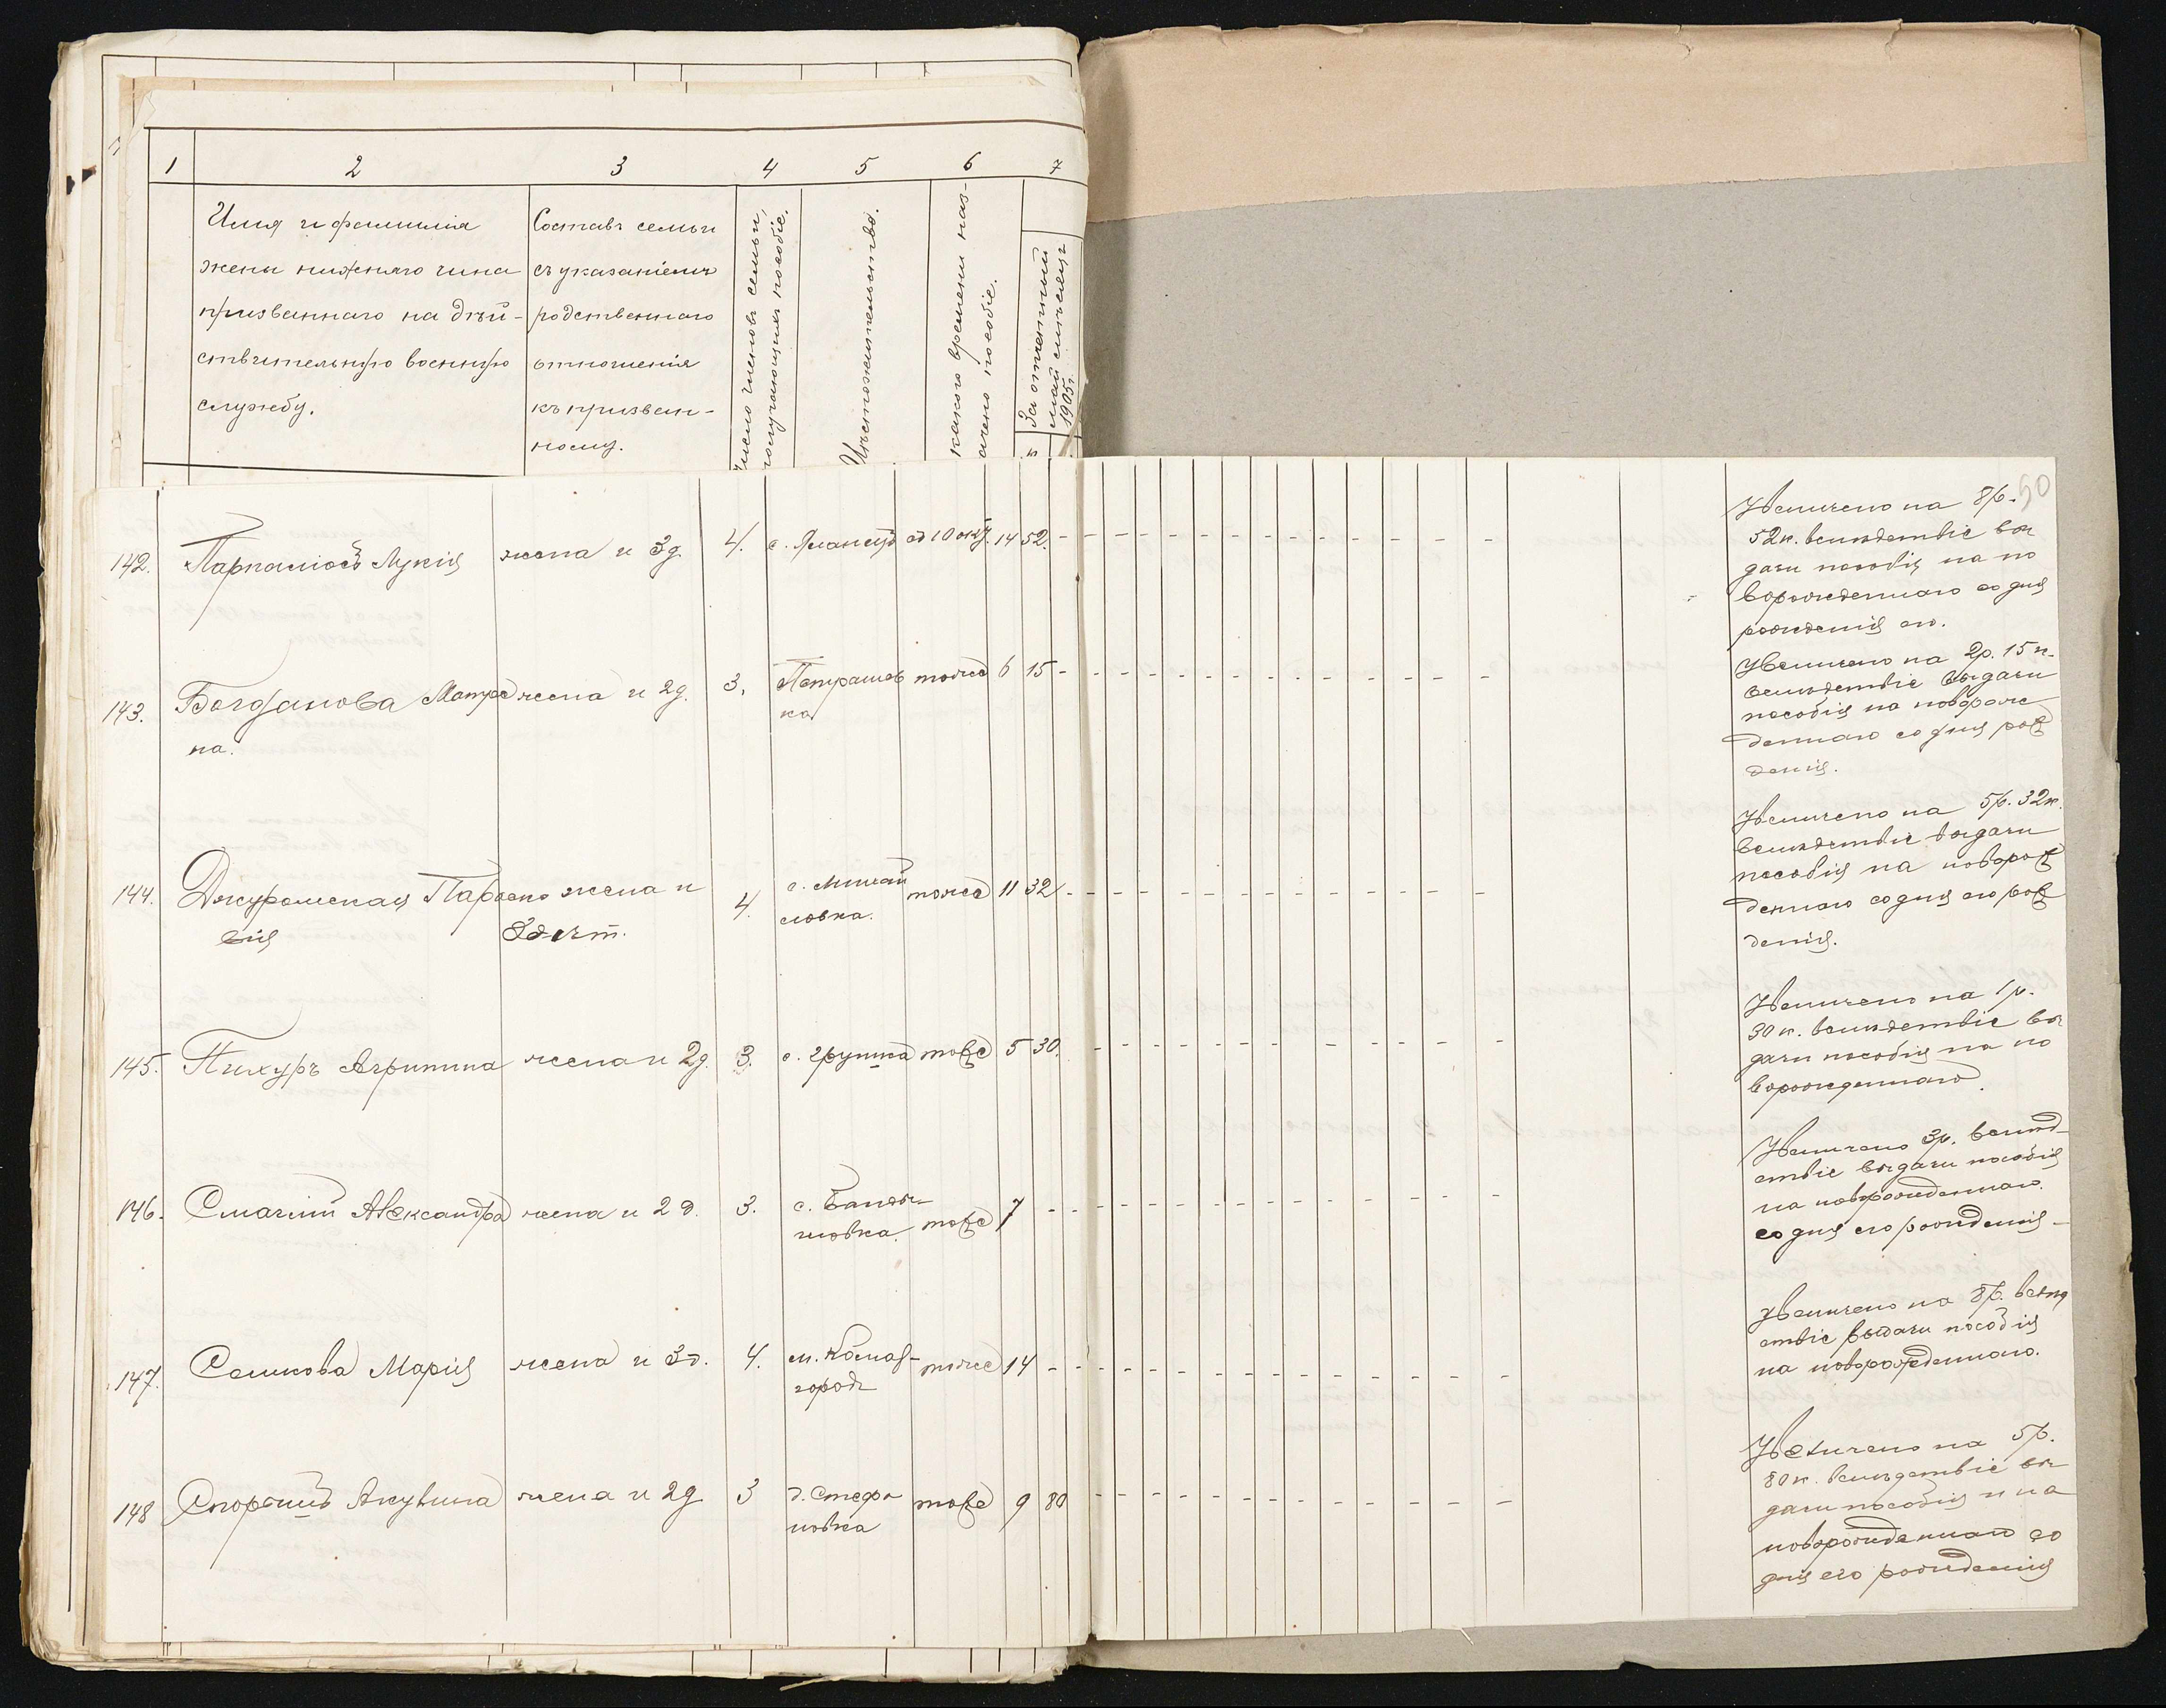 1 2 3 4 5 6 7
Имя и фамилія
жены нижняго чина
призваннаго на дѣй-
ствительную военную
службу.
Составъ семьи
съ указаніемъ
родственнаго
отношенія
къ призван-
ному.
Число членовъ семьи,
получающихъ пособіе.
Мѣстожительство.
какого времени наз-
ачено пособіе.
За отчетный
май мѣсяцъ
1905 г.
50
142. Лукія жена и 3 д. 4. с. от 10 окт. 14 52. - - - - - - - - - - - - - -
Увеличено на 8 р.
52 к. вслѣдствіе вы
дачи пособія на но
ворожденнаго со дня
рожденія его.
143. Богданова Матре жена и 2 д. 3. Петрашев тоже 6 15 - - - - - - - - - - - - - -
на.
ка
Увеличено на 2 р. 15 к.
вслѣдствіе выдачи
пособія на новорож
деннаго со дня рож
денія.
144. Джуромская Параске жена и 4. с. Михай тоже 11 32 - - - - - - - - - - - - - -
вія 3 дѣт. ловка.
Увеличено на 5 р. 32 к.
вслѣдствіе выдачи
пособія на новорож
деннаго со дня его рож
денія.
145. Пихуръ Агрипина жена и 2 д. 3. с. Грушка тоже 5 30. - - - - - - - - - - - - -
Увеличено на 1 р.
30 к. вслѣдствіе вы
дачи пособія на но
ворожденнаго.
146. Смачили Александра жена и 2 д. 3. с. Банды- тоже 7 - - - - - - - - - - - - - -
шовка.
Увеличено 3 р. вслѣд-
ствіе выдачи пособія
на новорожденнаго.
со дня его рожденія -
147. Сешкова Марія жена и 3 д. 4. м. Комар- тоже 14 - - - - - - - - - - - - - -
городъ
Увеличено на 8 р. вслѣд
ствіе выдачи пособія
на новорожденнаго.
148 Акулина жена и 2 д 3 д. Стефа тоже 9 80 - - - - - - - - - - - - -
новка
Увеличено на 5 р.
80 к. вслѣдствіе вы
дачи пособія и на
новорожденнаго со
дня его рожденія